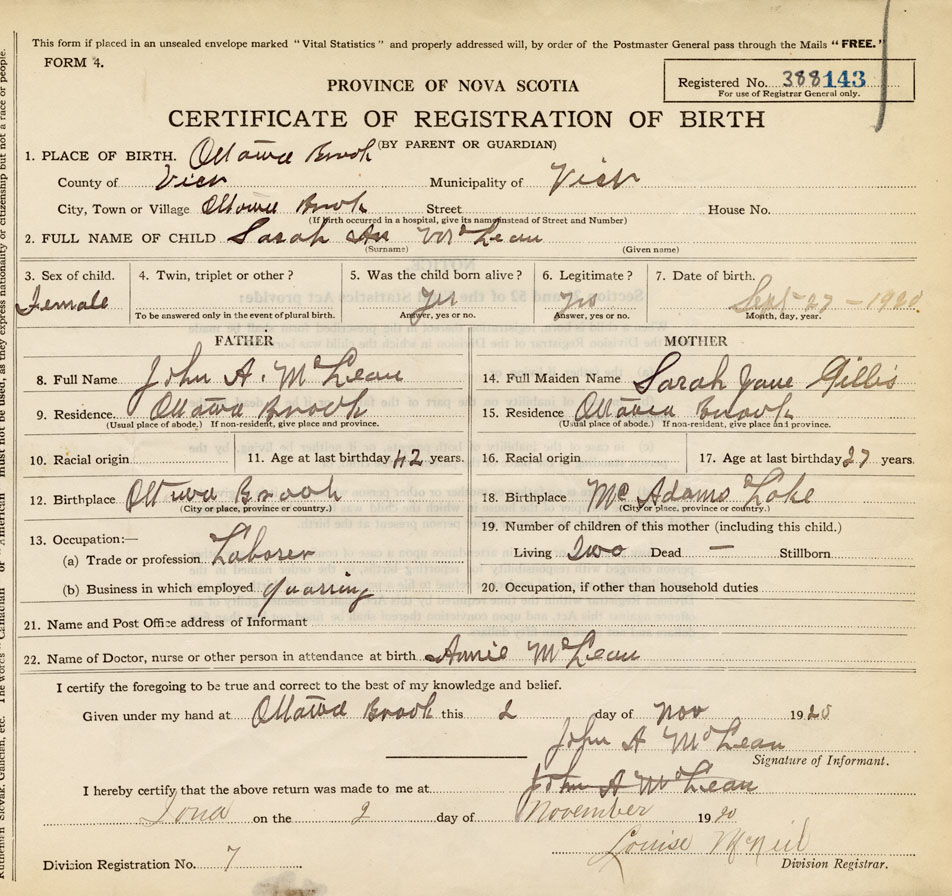 This form if placed in an unsealed envelope marked "Vital Statistics" and properly addressed will, by order of the Postmaster General pass through the Mails "FREE."
FORM 4.
PROVINCE OF NOVA SCOTIA
Registered No. 388143
For use of Registrar General only.
CERTIFICATE OF REGISTRATION OF BIRTH
(BY PARENT OR GUARDIAN)
1. PLACE OF BIRTH. Ottawa Brook
County of Vicr Municipality of Vicr
City, Town or Village Ottawa Brook Street House No.
(If birth occurred in a hospital, give its name instead of Street and Number)
2. FULL NAME OF CHILD Sarah An McLean
(Surname) (Given name)
3. Sex of child. 4. Twin, triplet or other? 5. Was the child born alive? 6. Legitimate? 7. Date of birth.
Female Yes Yes Sept 27 - 1920.
To be answered only in the event of plural birth. Answer, yes or no. Answer, yes or no. Month, day, year.
FATHER MOTHER
8. Full Name John A. McLean 14. Full Maiden Name Sarah Jane Gillis
9. Residence Ottawa Brook 15. Residence Ottawa Brook
(Usual place of abode.) If non-resident, give place and province. (Usual place of abode.) If non-resident, give place and province.
10. Racial origin 11. Age at last birthday 42 years. 16. Racial origin 17. Age at last birthday 27 years.
12. Birthplace Ottawa Brook 18. Birthplace McAdams Lake
(City or place, province or country.) (City or place, province or country.)
19. Number of children of this mother (including this child.)
13. Occupation:—
(a) Trade or profession Laborer Living Two Dead — Stillborn
(b) Business in which employed Quarring 20. Occupation, if other than household duties
21. Name and Post Office address of Informant
22. Name of Doctor, nurse or other person in attendance at birth Annie McLean
I certify the foregoing to be true and correct to the best of my knowledge and belief.
Given under my hand at Ottawa Brook this 2 day of Nov 1920
John A McLean
Signature of Informant.
I hereby certify that the above return was made to me at John A McLean
Iona on the 2 day of November 1920
Louise McNeil
Division Registration No. 7 Division Registrar.